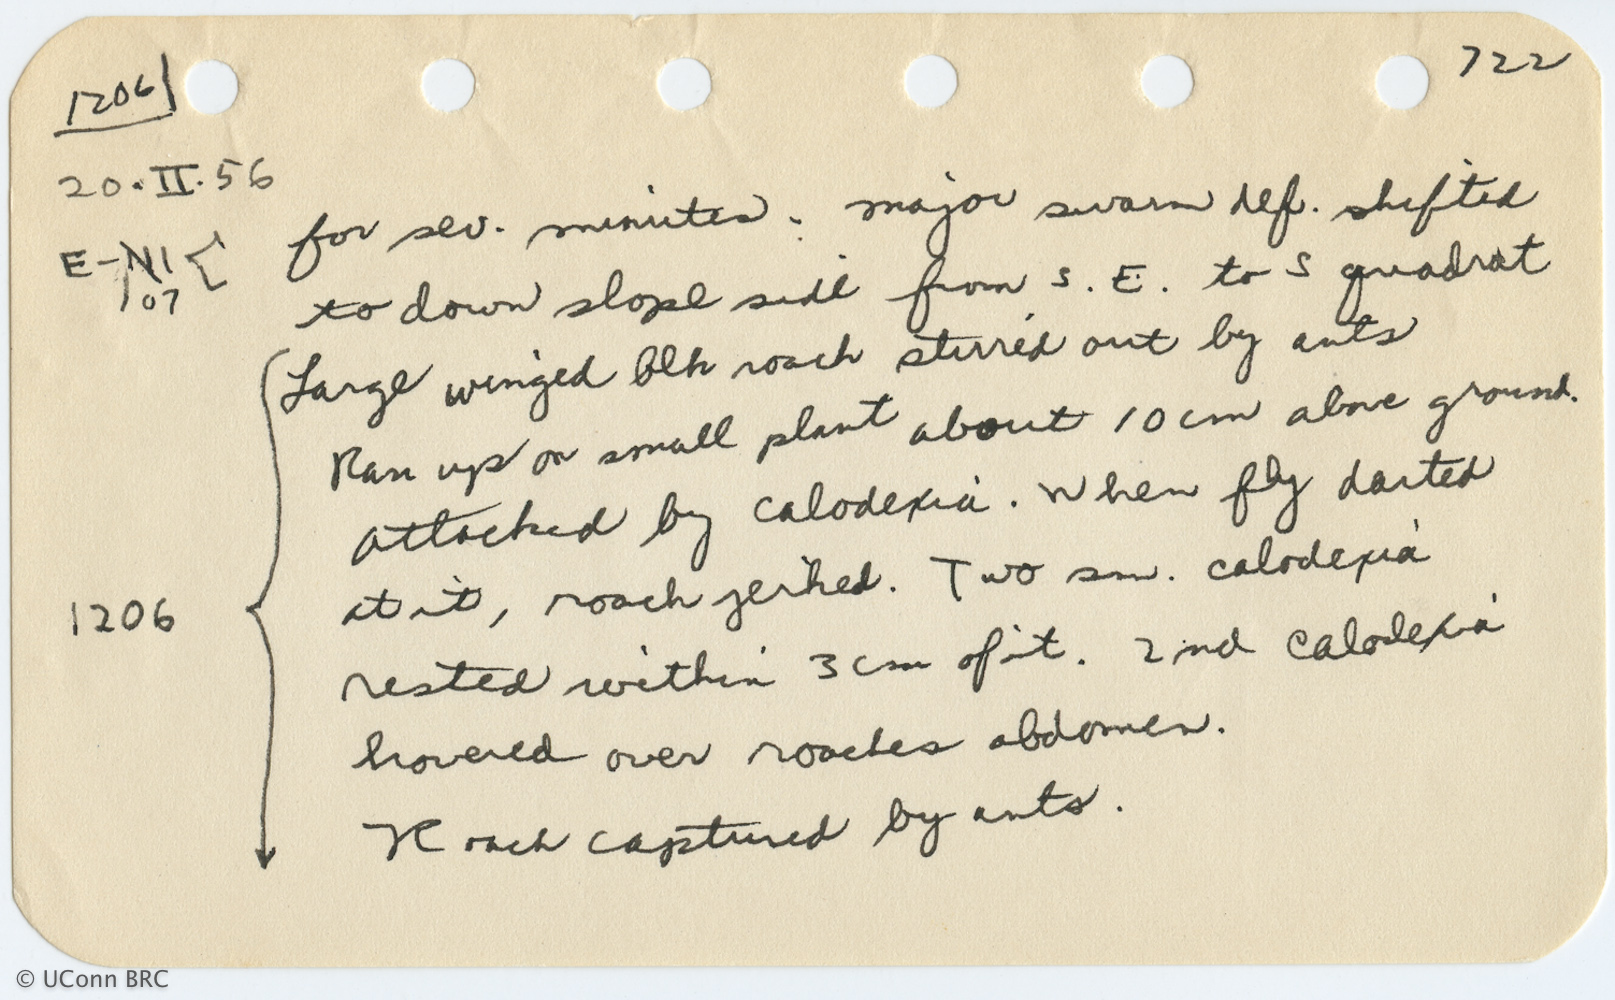 1206
722
20.II.56
E-N1
107
for sev. minutes. major swarm def. shifted
to down slope side from S.E. to S quadrat
Large winged blk roach stirred out by ants
Ran up on small plant about 10 cm above ground.
attacked by calodexia. When fly darted
at it, roach jerked. Two sm. calodexia
1206
rested within 3 cm of it. 2nd calodexia
hovered over roaches abdomen.
Roach captured by ants.
© UConn BRC